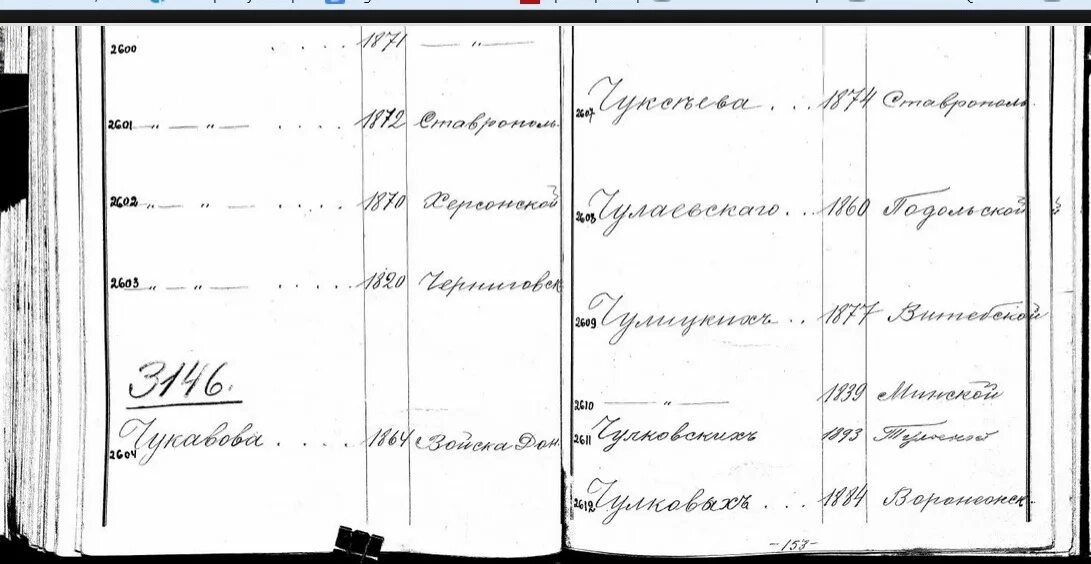 2600 . . . . 1871 — „ —
2601 „ — „ — . . . . 1872 Ставрополь.
2602 „ — „ — . . . . 1870 Херсонской
2603 „ — „ — . . . . . 1820 Черниговск
3146.
2604 Чукавова . . . . 1864 Войска Дон.
2607 Чуксѣева . . . 1874 Ставрополь.
2608 Чулаевскаго . . . 1860 Подольской
2609 Чулицкихъ . . 1877 Витебской
2610 — „ — 1839 Минской
2611 Чулковскихъ 1893
2612 Чулковыхъ . . . 1884 Воронежск.
-153-